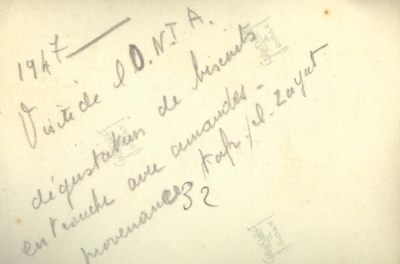 1947
Visite de l'O.N.I.A.
dégustation de biscuits
en tranche avec amandes -
provenance Kafr-el-Zayat
32